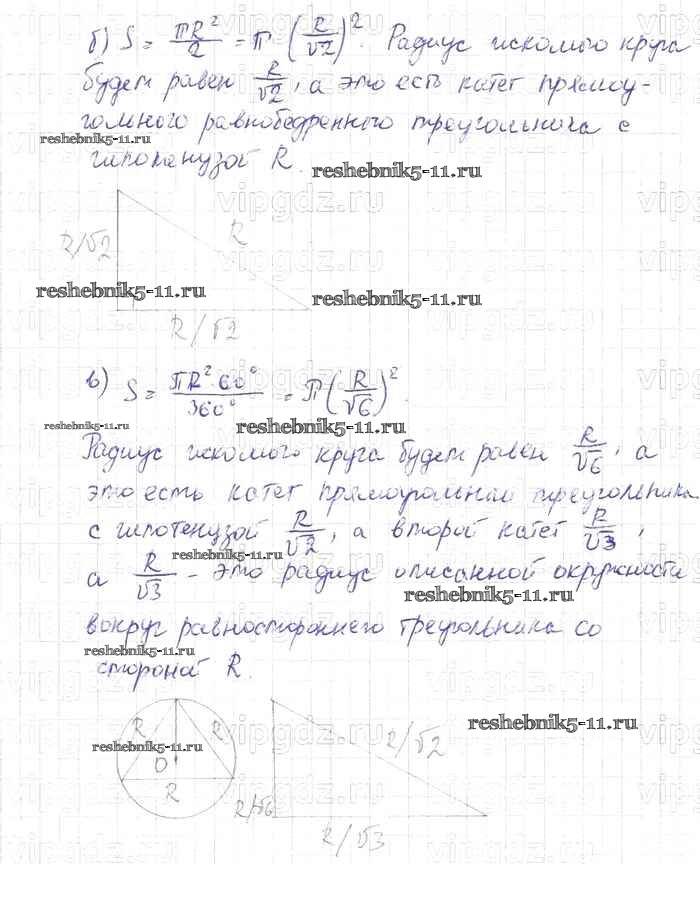 б) S = πR²/2 = π (R/√2)². Радиус искомого круга
будет равен R/√2, а это есть катет прямоу-
гольного равнобедренного треугольника с
reshebnik5-11.ru
гипотенузой R.
reshebnik5-11.ru
vipgdz.ru
R/√2
R
reshebnik5-11.ru
reshebnik5-11.ru
R/√2
в) S = πR²·60°/360° = π(R/√6)².
reshebnik5-11.ru
reshebnik5-11.ru
Радиус искомого круга будет равен R/√6, а
это есть катет прямоугольной треугольника
с гипотенузой R/√2, а второй катет R/√3,
reshebnik5-11.ru
а R/√3 - это радиус описанной окружности
reshebnik5-11.ru
вокруг равностороннего треугольника со
reshebnik5-11.ru
стороной R.
reshebnik5-11.ru
R
R
R/√2
reshebnik5-11.ru
O
R
R/√6
R/√3
vipgdz.ru